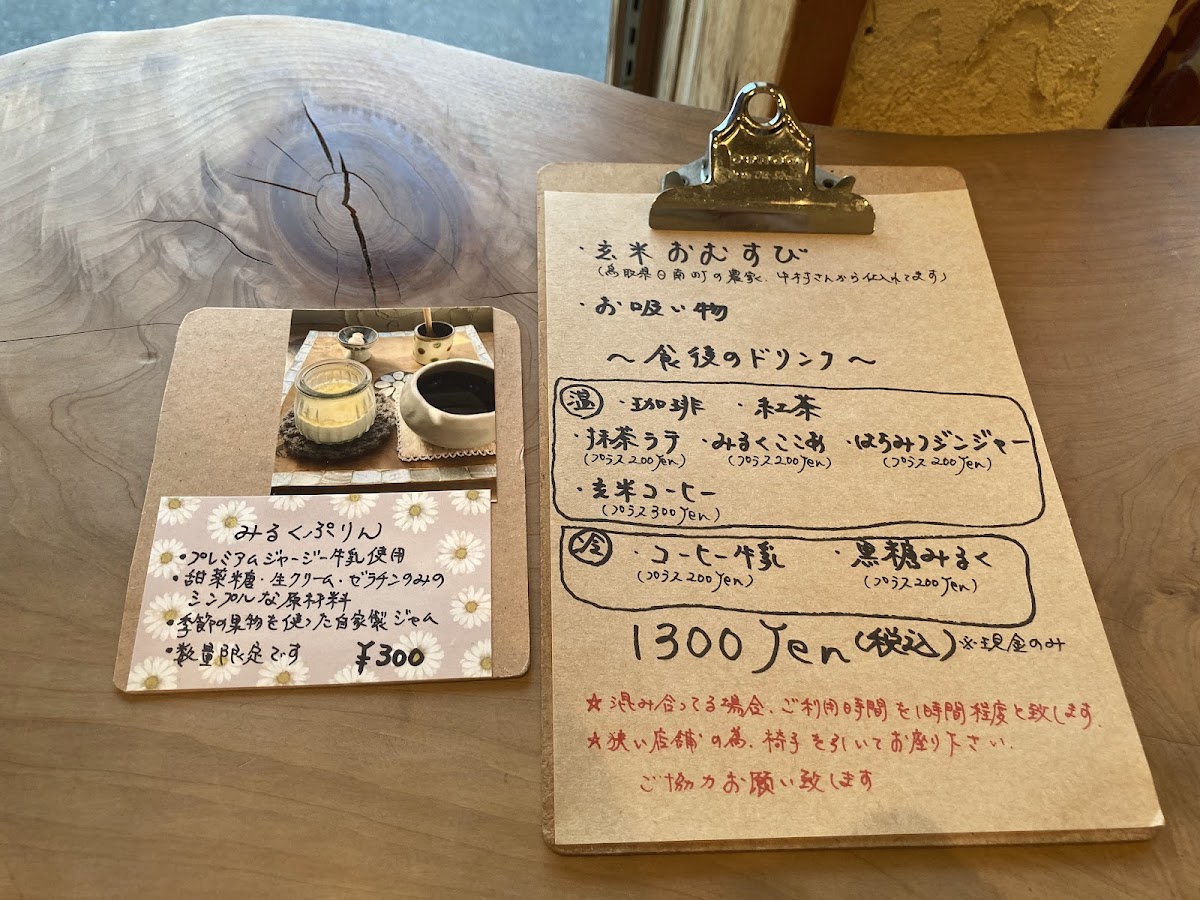 みるくぷりん
・プレミアムジャージー牛乳使用
・甜菜糖・生クリーム・ゼラチンのみの
シンプルな原材料
・季節の果物を使った自家製ジャム
・数量限定です ¥300
・玄米おむすび
(鳥取県日南町の農家、中村さんから仕入れてます)
・お吸い物
～食後のドリンク～
温 ・珈琲 ・紅茶
・抹茶ラテ ・みるくここあ ・はちみつジンジャー
(プラス200yen) (プラス200yen) (プラス200yen)
・玄米コーヒー
(プラス300yen)
冷 ・コーヒー牛乳 ・黒糖みるく
(プラス200yen) (プラス200yen)
1300yen(税込)※現金のみ
★混み合ってる場合、ご利用時間を1時間程度と致します.
★狭い店舗の為、椅子を引いてお座り下さい.
ご協力お願い致します